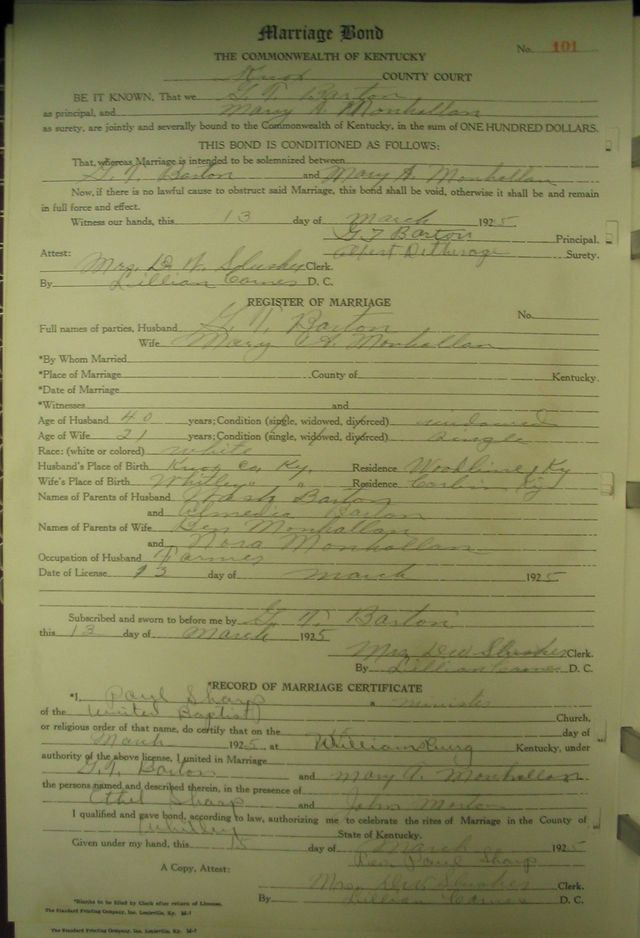 Marriage Bond
No. 101
THE COMMONWEALTH OF KENTUCKY
Knox COUNTY COURT
BE IT KNOWN, That we G. T. Barton
as principal, and Mary A Monhallan
as surety, are jointly and severally bound to the Commonwealth of Kentucky, in the sum of ONE HUNDRED DOLLARS.
THIS BOND IS CONDITIONED AS FOLLOWS:
That, whereas Marriage is intended to be solemnized between
G. T. Barton and Mary A. Monhallan
Now, if there is no lawful cause to obstruct said Marriage, this bond shall be void, otherwise it shall be and remain
in full force and effect.
Witness our hands, this 13 day of March 1925.
G T Barton Principal.
Surety.
Attest:
Mrs. D. W. Slusher Clerk.
By Lillian Carnes D. C.
REGISTER OF MARRIAGE
No.
Full names of parties, Husband G. T. Barton
Wife Mary A. Monhallan
*By Whom Married
*Place of Marriage County of Kentucky.
*Date of Marriage
*Witnesses and
Age of Husband 40 years; Condition (single, widowed, divorced) widowed
Age of Wife 21 years; Condition (single, widowed, divorced) single
Race: (white or colored) white
Husband's Place of Birth Knox Co, Ky. Residence Woodbine, Ky
Wife's Place of Birth Whitley " " Residence Corbin Ky
Names of Parents of Husband Barton
and Almedia Barton
Names of Parents of Wife Ben Monhallan
and Nora Monhallan
Occupation of Husband Farmer
Date of License 13 day of March 1925
Subscribed and sworn to before me by G. T. Barton
this 13 day of March 1925
Mrs D W Slusher Clerk.
By Lillian Carnes D. C.
*RECORD OF MARRIAGE CERTIFICATE
*I, Paul Sharp a minister
of the (United Baptist) Church,
or religious order of that name, do certify that on the 15 day of
March 1925, at Williamsburg Kentucky, under
authority of the above license, I united in Marriage
G. T. Barton and Mary A. Monhallan
the persons named and described therein, in the presence of
Ethel Sharp and John
I qualified and gave bond, according to law, authorizing me to celebrate the rites of Marriage in the County of
Whitley State of Kentucky.
Given under my hand, this day of March 1925
Rev. Paul Sharp
A Copy, Attest:
Mrs D W Slusher Clerk.
By Lillian Carnes D. C.
*Blanks to be filled by Clerk after return of License.
The Standard Printing Company, Inc. Louisville, Ky. M-7
The Standard Printing Company, Inc. Louisville, Ky. M-7